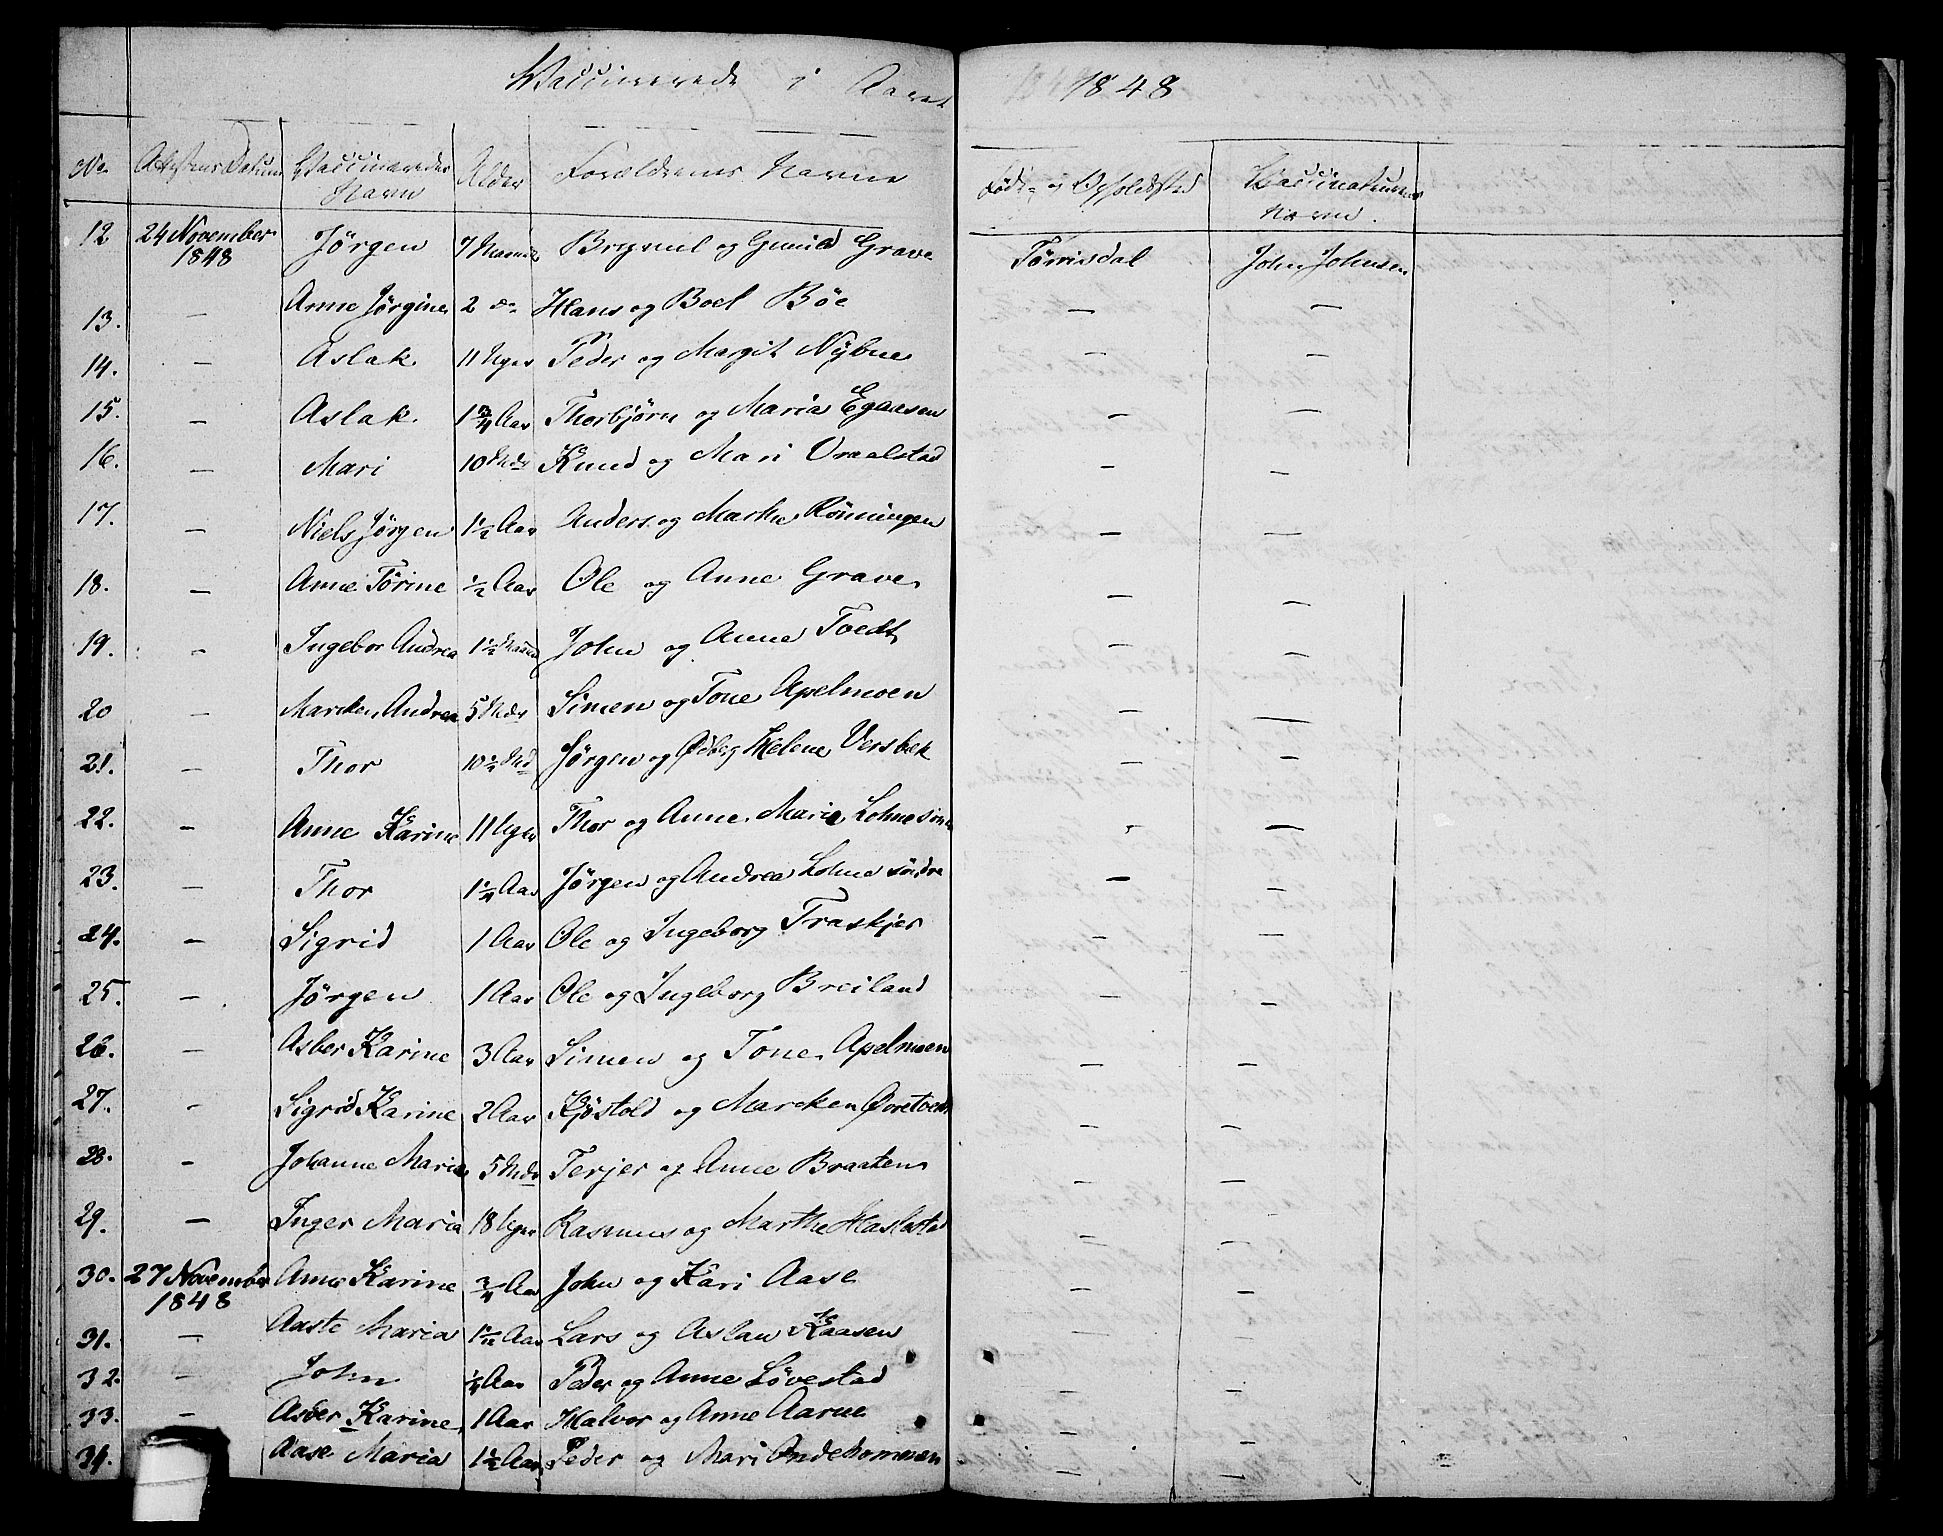 Vaccinerede i Aaret 1848
No Attestens Datum Vaccineredes Navn Alder Forældrenes Navne Føde- og Opholdssted Vaccinateurens Navn.
12 24 November 1848 Jörgen 7 Maaneder og Gunild Grave Törrisdal John Johnsen
13. — Anne Jörgine 2 do Hans og Boel Böe — —
14. — Aslak 11 Uger Peder og Margit Nÿbue — —
15. — Aslak. 1 3/4 Aar Thorbjörn og Maria Egaasen — —
16. — Mari 10 Mdr Knud og Mari Vraalstad — —
17. — Niels Jörgen 1 1/2 Aar Anders og Marthe Rönningen — —
18. — Anne Törine 1/2 Aar Ole og Anne Grave — —
19. — Ingebor Andrea 1 1/2 John og Anne Toedt — —
20 — Marcken Andrea 5 Mdr Simen og Tone Apelmoen — —
21. — Thor 10 1/2 Md Jörgen og Helene Versbæk — —
22. — Anne Karine 11 Uger Thor og Anne Maria Lohne — —
23. — Thor 1 1/4 Aar Jörgen og Andrea Lohne söndre — —
24. — Sigrid 1 Aar Ole og Ingeborg Fraskjer — —
25. — Jörgen 1 Aar Ole og Ingeborg Breiland — —
26. — Asber Karine 3 Aar Simen og Tone Apelmoen — —
27. — Sigrid Karine 2 Aar Kjöstold og Marcken — —
28. — Johanne Maria 5 Mdr Terjer og Anne Braaten — —
29. — Inger Maria 18 Uger Rasmus og Marthe Haslestad — —
30. 27 November 1848 Anne Karine 3/4 Aar John og Kari Aase — —
31. — Aaste Maria Aar Lars og Aslau Kaasen — —
32. — John Aar Peder og Anne Lövestad — —
33. — Asber Karine 1 Aar Halvor og Anne Aarne — —
34. Aase Maria 1 1/2 Aar Peder og Mari — —